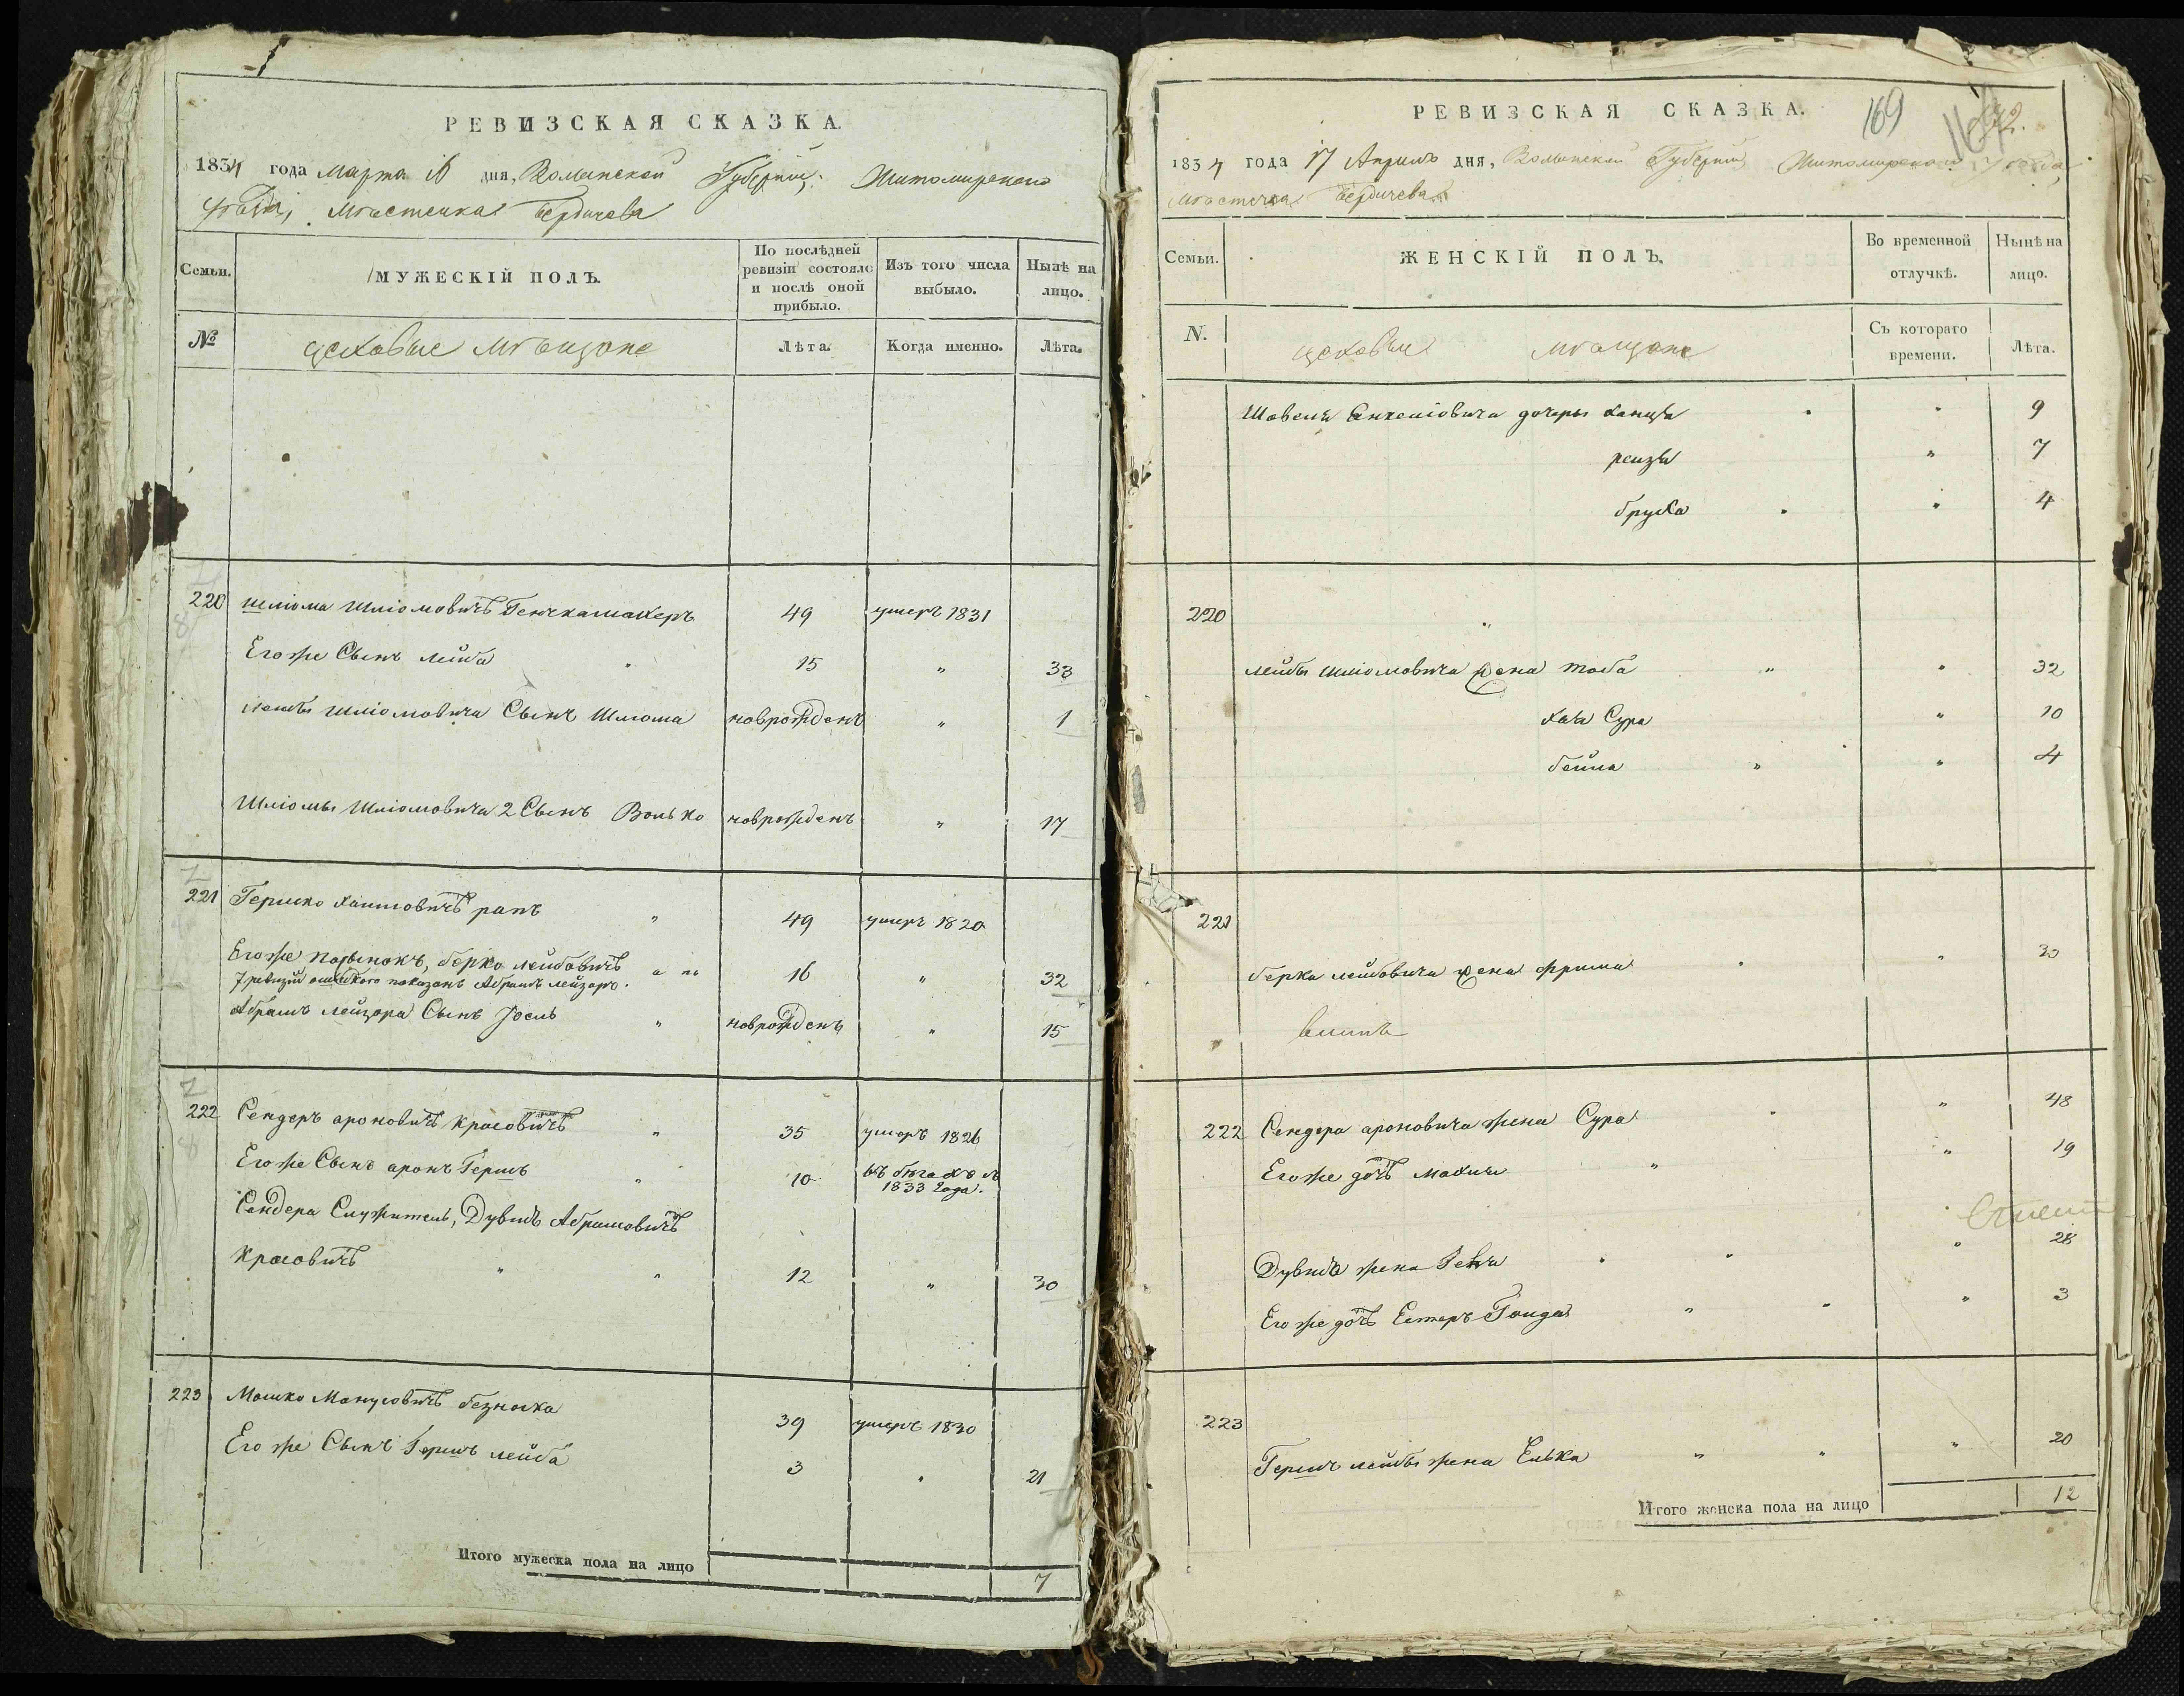 РЕВИЗСКАЯ СКАЗКА.
1834 года Марта 16 дня, Волынской Губерніи, Житомирского
уѣзда, Мѣстечка Бердичева
Семьи.
МУЖЕСКІЙ ПОЛЪ.
По послѣдней ревизіи состояло и послѣ оной прибыло.
Изъ того числа выбыло.
Нынѣ на лицо.
№
цеховые мѣщане
Лѣта.
Когда именно.
Лѣта.
220 шліома Шліомовичъ Генчкамахеръ 49 умеръ 1831
Его же Сынъ лейба " 15 " 33
лейбы шліомовича Сынъ Шлюма новрожденъ " 1
Шліомы Шліомовича 2 Сынъ Волько новрожденъ " 17
221 Гершко хаимовичъ рапъ " 49 умеръ 1820
Его же , берко лейбовичъ а по 16 " 32
7 ревизіи показанъ Абрамъ лейзаръ.
Абрамъ лейзора Сынъ Іосль " новрожденъ " 15
222 Сендеръ ароновичъ красовичъ " 35 умеръ 1826
Его же Сынъ аронъ Гершъ " 10 въ бѣгахъ
1833 года.
Сендера Служитель, Дувидъ Абрамовичъ
Красовичъ " " 12 " 30
223 Мошко Манусовичъ безноска 39 умеръ 1830
Его же Сынъ Гершъ лейба 3 " 21
Итого мужеска пола на лицо 7
РЕВИЗСКАЯ СКАЗКА.
169
1834 года 17 Априлъ дня, Волынской Губерніи Житомирского уѣзда,
Мѣстечка Бердичева
Семьи.
ЖЕНСКІЙ ПОЛЪ.
Во временной отлучкѣ.
Нынѣ на лицо.
N.
цеховые мѣщане
Съ котораго времени.
Лѣта.
Шовеля дочеры ханця " " 9
рейзя " 7
бруха " " 4
220 "
лейбы шліомовича жена тоба " " 32
хая Сура " 10
бейла " " 4
221
берка лейбовича жена фрима " " 30
222 Сендера ароновича жена Сура " " 48
Его же дочь махля " " 19
Дувида жена " " " 28
Его же дочь Естеръ " " " 3
223
Гершъ лейбы жена Елька " " " 20
Итого женска пола на лицо 12